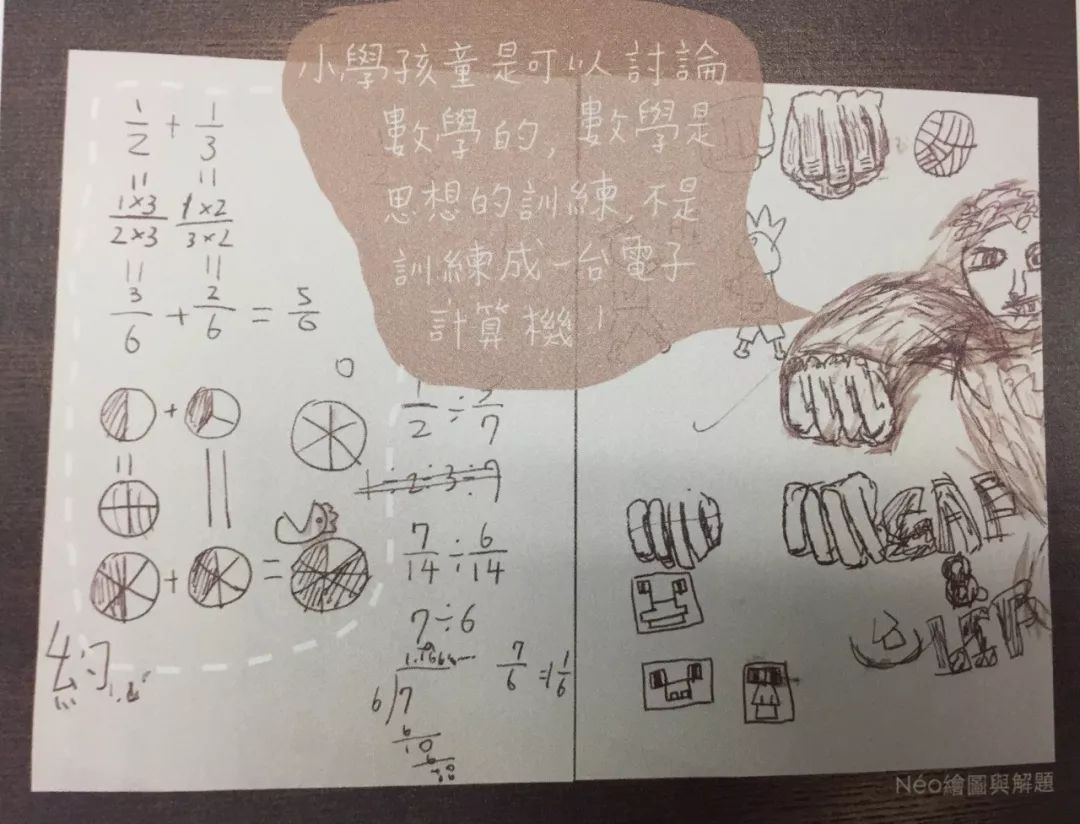 小學孩童是可以討論
數學的，數學是
思想的訓練，不是
訓練成一台電子
計算機！
1/2 + 1/3
= =
1×3/2×3 1×2/3×2
= =
3/6 + 2/6 = 5/6
+
=
+ =
1/2 ÷ 3/7
1÷2÷3÷7
7/14 ÷ 6/14
7÷6
6)7
7/6 =1 1/6
Néo繪圖與解題